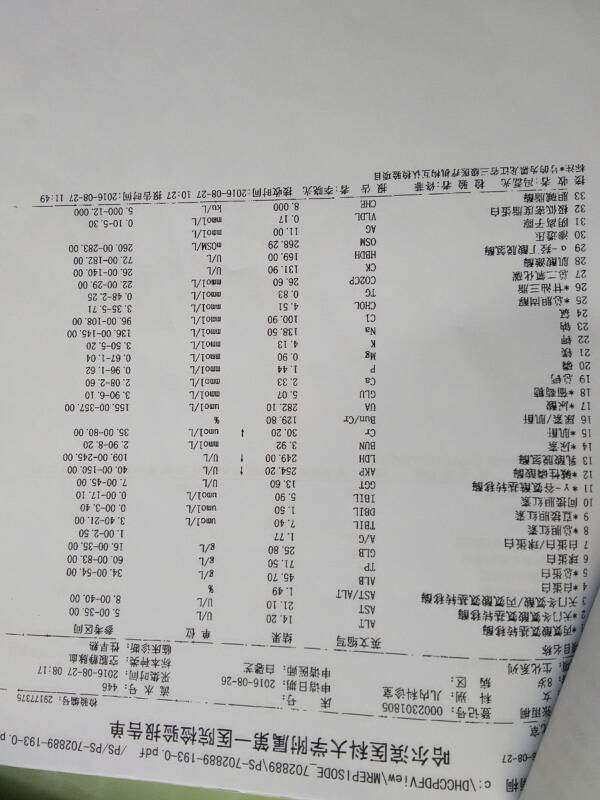 c:\DHCCPDFView\MREPISODE_702889\PS-702889-193-0.pdf /PS-702889-193-0.p
-08-27
哈尔滨医科大学附属第一医院检验报告单
登记号: 0002301805 床 号: 流 水 号: 446 检验编号: 29177375
女 科 别: 儿内科诊室 申请日期: 2016-08-26 采集时间: 2016-08-27 08:17
8岁 病 区: 申请医师: 标本种类: 空腹静脉血
生化系列 临床诊断: 性早熟
项目名称 英文缩写 结果 单 位 参考区间
*丙氨酸氨基转移酶 ALT 14.20 U/L 5.00-35.00
2 *天门冬氨酸氨基转移酶 AST 21.10 U/L 8.00-40.00
3 天门冬氨酸/丙氨酸氨基转移酶 AST/ALT 1.49 %
4 *白蛋白 ALB 45.70 g/L 34.00-54.00
5 *总蛋白 TP 71.50 g/L 60.00-83.00
6 球蛋白 GLB 25.80 g/L 16.00-35.00
7 白蛋白/球蛋白 A/G 1.77 1.00-2.50
8 *总胆红素 TBIL 7.40 umol/L 3.40-21.00
9 *直胆红素 DBIL 1.50 umol/L 0.00-3.40
10 间接胆红素 IBIL 5.90 umol/L 0.00-17.10
11 *γ-谷氨酰氨基转移酶 GGT 13.60 U/L 7.00-45.00
12 *碱性磷酸酶 AKP 254.20 ↑ U/L 40.00-150.00
13 乳酸脱氢酶 LDH 249.00 ↑ U/L 109.00-245.00
14 *尿素 BUN 3.92 mmol/L 2.90-8.20
15 *肌酐 Cr 30.20 ↓ umol/L 35.00-80.00
16 尿素/肌酐 Bun/Cr 129.80 %
17 *尿酸 UA 282.10 umol/L 155.00-357.00
18 *葡萄糖 GLU 5.07 mmol/L 3.90-6.10
19 总钙 Ca 2.33 mmol/L 2.08-2.60
20 磷 P 1.44 mmol/L 0.96-1.62
21 镁 Mg 0.90 mmol/L 0.67-1.04
22 钾 K 4.13 mmol/L 3.50-5.20
23 钠 Na 138.50 mmol/L 136.00-145.00
24 氯 Cl 100.90 mmol/L 96.00-108.00
25 *总胆固醇 CHOL 4.51 mmol/L 3.35-71.5
26 *甘油三脂 TG 0.83 mmol/L 0.48-2.25
27 总二氧化碳 CO2CP 26.60 mmol/L 22.00-29.00
28 肌酸激酶 CK 131.90 U/L 26.00-140.00
29 α-羟丁酸脱氢酶 HBDH 169.00 U/L 72.00-182.00
30 渗透压 OSM 268.29 mOSM/L 260.00-283.00
31 阴离子隙 AG 11.00 mmol/L
32 极低密度脂蛋白 VLDL 0.17 mmol/L 0.10-5.30
33 胆碱脂酶 CHE 8.000 ku/L 5.000-12.000
接 收 者: 冯磊光 检 验 者: 报 告 者: 李晓光 接收时间: 2016-08-27 10:27 报告时间: 2016-08-27 11:49
标注*的为黑龙江省三级医疗机构互认检验项目